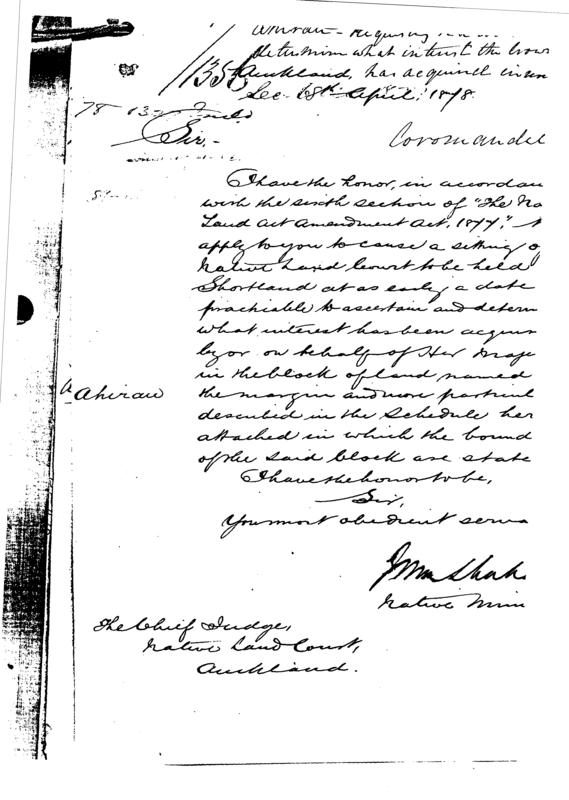 determine what interest the Crow
Auckland, has acquired in
Dec 18th April, 1878.
Coromandel
78
Sir,-
I have the honor, in accordan
with the sixth section of "The Na
Land Act Amendment Act, 1877,"
apply to you to cause a sitting o
Native Land Court to be held
Shortland at as early a date
practicable to ascertain and determ
what interest has been acquir
by or on behalf of Her Maje
in the block of land named
Ahirau
the margin and more particul
described in the Schedule her
attached in which the bound
of the said block are state
I have the honor to be,
Sir,
Your most obedient serva
Native Minis
The Chief Judge,
Native Land Court,
Auckland.